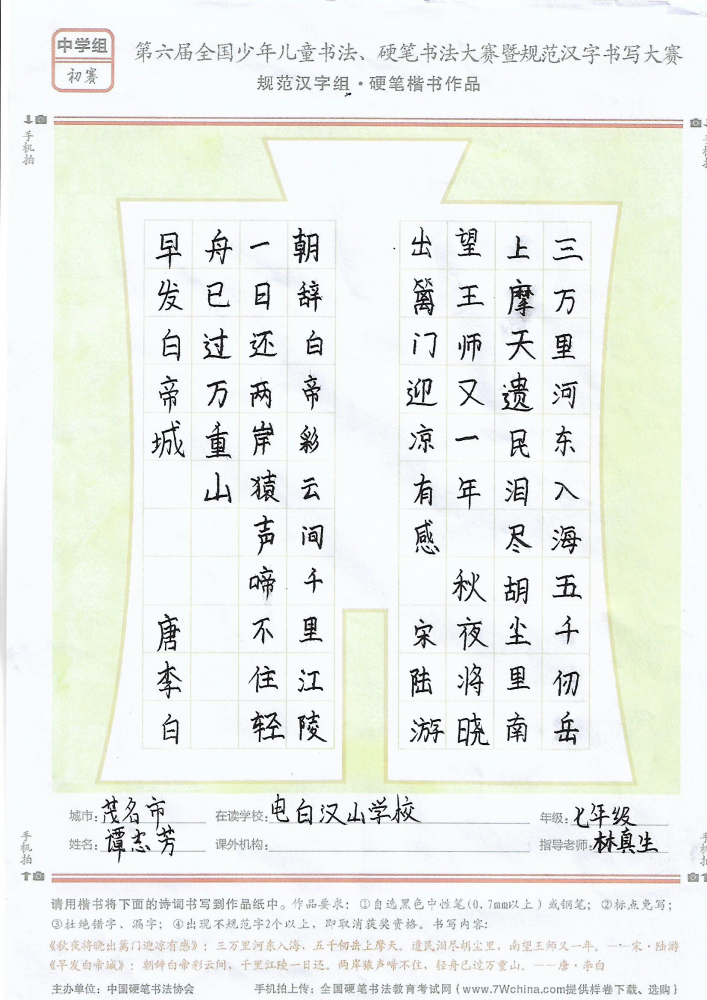 中学组
初赛
第六届全国少年儿童书法、硬笔书法大赛暨规范汉字书写大赛
规范汉字组·硬笔楷书作品
手机拍
手机拍
三万里河东入海五千仞岳
上摩天遗民泪尽胡尘里南
望王师又一年 秋夜将晓
出篱门迎凉有感 宋陆游
朝辞白帝彩云间千里江陵
一日还两岸猿声啼不住轻
舟已过万重山
早发白帝城 唐李白
城市：茂名市 在读学校：电白汉山学校 年级：七年级
姓名：谭志芳 课外机构： 指导老师：林真生
手机拍
手机拍
请用楷书将下面的诗词书写到作品纸中。作品要求：①自选黑色中性笔(0.7mm以上)或钢笔；②标点免写；
③杜绝错字、漏字；④出现不规范字2个以上，即取消获奖资格。书写内容：
《秋夜将晓出篱门迎凉有感》：三万里河东入海，五千仞岳上摩天。遗民泪尽胡尘里，南望王师又一年。——宋·陆游
《早发白帝城》：朝辞白帝彩云间，千里江陵一日还。两岸猿声啼不住，轻舟已过万重山。——唐·李白
主办单位：中国硬笔书法协会 手机拍上传：全国硬笔书法教育考试网{www.7Wchina.com提供样卷下载、选购}